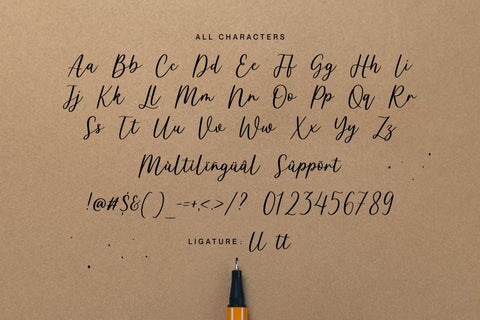 ALL CHARACTERS
Aa Bb Cc Dd Ee Ff Gg Hh Ii
Jj Kk Ll Mm Nn Oo Pp Qq Rr
Ss Tt Uu Vv Ww Xx Yy Zz
Mùltilïngüâl Sûppört
!@#$&( )_-=+,<.>/? 0123456789
LIGATURE: ll tt